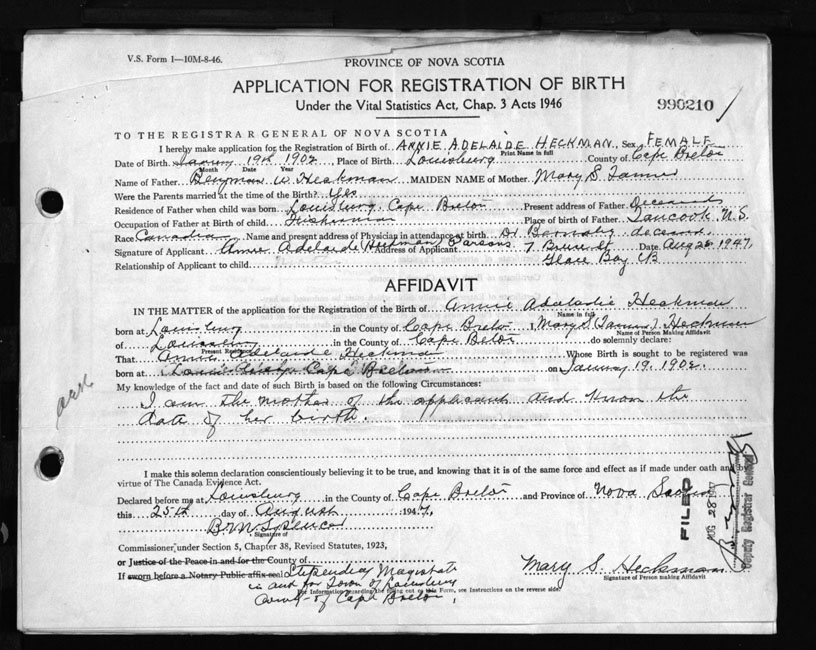 V.S. Form 1—10M-8-46.
PROVINCE OF NOVA SCOTIA
APPLICATION FOR REGISTRATION OF BIRTH
Under the Vital Statistics Act, Chap. 3 Acts 1946
990210
TO THE REGISTRAR GENERAL OF NOVA SCOTIA
I hereby make application for the Registration of Birth of ANNIE ADELAIDE HECKMAN, Sex FEMALE
Print Name in full
Date of Birth January 19th 1902, Place of Birth Louisburg County of Cape Breton
Month Date Year
Name of Father Benjman W Heckman MAIDEN NAME of Mother Mary S. Tanner
Were the Parents married at the time of the Birth? Yes
Residence of Father when child was born Louisburg Cape Breton Present address of Father Deceased
Occupation of Father at Birth of child Fisherman Place of birth of Father Tancook, N.S.
Race Canadian Name and present address of Physician in attendance at birth Dr deceased
Signature of Applicant Annie Adelaide Heckman Parsons Address of Applicant 7 St. Date Aug 26 1947,
Relationship of Applicant to child Glace Bay CB
AFFIDAVIT
IN THE MATTER of the application for the Registration of the Birth of Annie Adaladie Heckman
Name in full
born at Louisburg in the County of Cape Breton I Mary S. (Tanner) Heckman
Name of Person Making Affidavit
of Louisburg in the County of Cape Beton do solemnly declare:
Present Residence
That Annie Adelaide Heckman Whose Birth is sought to be registered was
born at Cape Breton on January 19, 1902.
My knowledge of the fact and date of such Birth is based on the following Circumstances:
I am the mother of the applicant and know the
date of her birth.
I make this solemn declaration conscientiously believing it to be true, and knowing that it is of the same force and effect as if made under oath and by
virtue of The Canada Evidence Act.
Declared before me at Louisburg in the County of Cape Breton and Province of Nova Scotia
this 25th day of August 1947,
B.M. Spencer
Signature of
Commissioner, under Section 5, Chapter 38, Revised Statutes, 1923,
or Justice of the Peace in and for the County of
If sworn before a Notary Public affix seal Stipendiary Magistrate
in and for Town of Louisburg
County of Cape Breton,
For Information regarding the filling out of this Form, see Instructions on the reverse side.
Mary S. Heckman
Signature of Person making Affidavit
FILED
AUG 28 1947
Deputy Registrar General